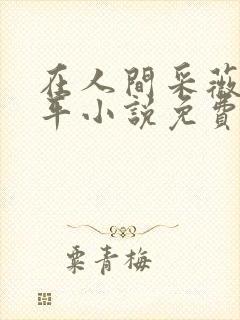 在人間采薇
年小說免費
粟青梅